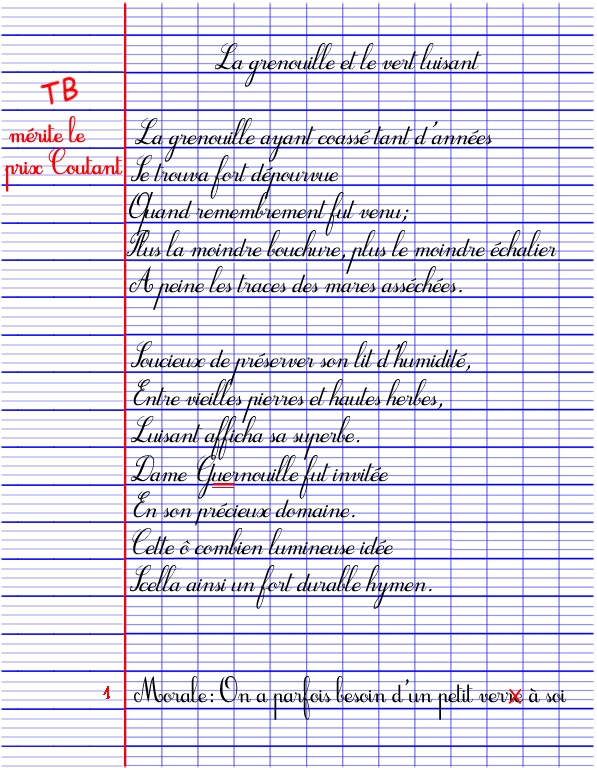 La grenouille et le vert luisant
TB
mérite le
prix Coutant
La grenouille ayant coassé tant d'années
Se trouva fort dépourvue
Quand remembrement fut venu;
Plus la moindre bouchure, plus le moindre échalier
A peine les traces des mares asséchées.
Soucieux de préserver son lit d'humidité,
Entre vieilles pierres et hautes herbes,
Luisant afficha sa superbe.
Dame Guernouille fut invitée
En son précieux domaine.
Cette ô combien lumineuse idée
Scella ainsi un fort durable hymen.
1
Morale: On a parfois besoin d'un petit verre à soi